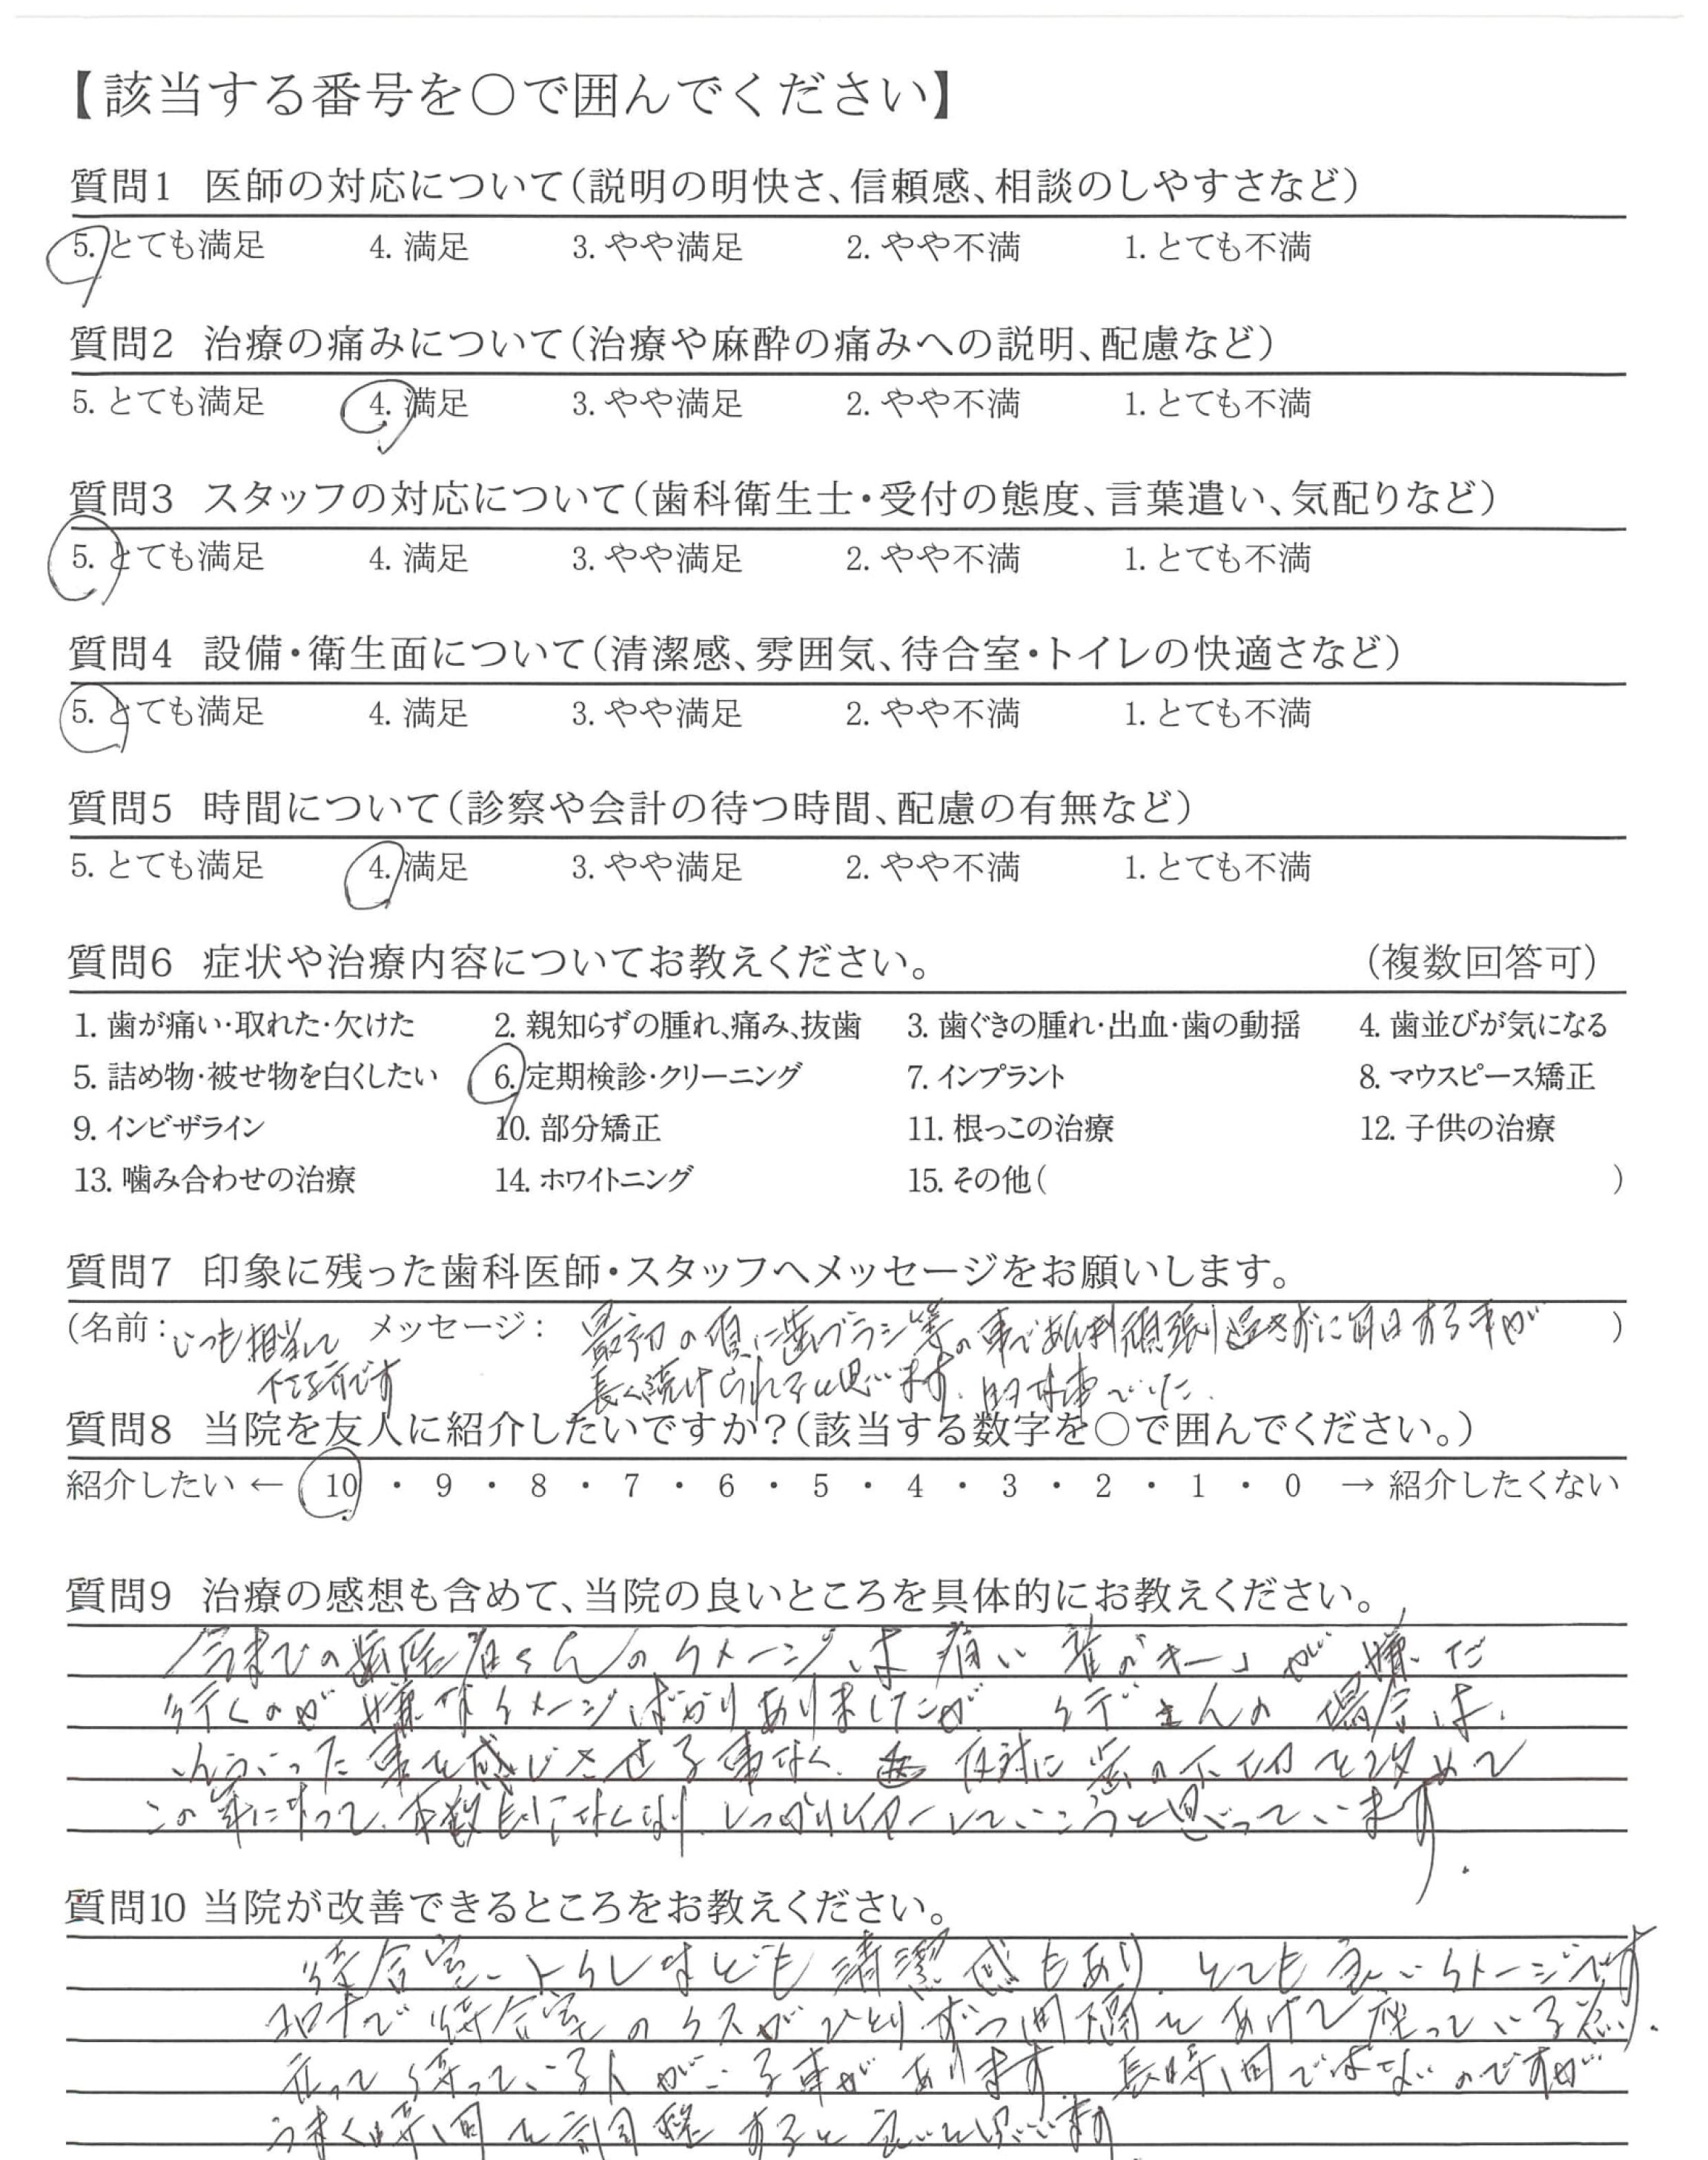 【該当する番号を○で囲んでください】
質問1 医師の対応について(説明の明快さ、信頼感、相談のしやすさなど)
5. とても満足 4. 満足 3. やや満足 2. やや不満 1. とても不満
質問2 治療の痛みについて(治療や麻酔の痛みへの説明、配慮など)
5. とても満足 4. 満足 3. やや満足 2. やや不満 1. とても不満
質問3 スタッフの対応について(歯科衛生士・受付の態度、言葉遣い、気配りなど)
5. とても満足 4. 満足 3. やや満足 2. やや不満 1. とても不満
質問4 設備・衛生面について(清潔感、雰囲気、待合室・トイレの快適さなど)
5. とても満足 4. 満足 3. やや満足 2. やや不満 1. とても不満
質問5 時間について(診察や会計の待つ時間、配慮の有無など)
5. とても満足 4. 満足 3. やや満足 2. やや不満 1. とても不満
質問6 症状や治療内容についてお教えください。 (複数回答可)
1. 歯が痛い・取れた・欠けた 2. 親知らずの腫れ、痛み、抜歯 3. 歯ぐきの腫れ・出血・歯の動揺 4. 歯並びが気になる
5. 詰め物・被せ物を白くしたい 6. 定期検診・クリーニング 7. インプラント 8. マウスピース矯正
9. インビザライン 10. 部分矯正 11. 根っこの治療 12. 子供の治療
13. 噛み合わせの治療 14. ホワイトニング 15. その他( )
質問7 印象に残った歯科医師・スタッフへメッセージをお願いします。
(名前: いつも担当して メッセージ: 最初の頃に歯ブラシ等の事であんまり頑張り過ぎずに毎日する事が )
下さる方です 長く続けられると思います。
質問8 当院を友人に紹介したいですか?(該当する数字を○で囲んでください。)
紹介したい ← 10 ・ 9 ・ 8 ・ 7 ・ 6 ・ 5 ・ 4 ・ 3 ・ 2 ・ 1 ・ 0 → 紹介したくない
質問9 治療の感想も含めて、当院の良いところを具体的にお教えください。
今までの歯医者さんのイメージは痛い 音がキーンが嫌だ
行くのが嫌なイメージばかりありましたが さんの場合は、
いった事を感じさせる事なく、反対に歯の大切を改めて
この年になって、本数もしっかりケアーしていこうと思っています。
質問10 当院が改善できるところをお教えください。
待合室、トイレなども清潔感もあり、とても良いイメージです
コロナで待合室のイスがひとりずつ間隔をあけて座っている為、
立って待っている人がいる事があります。長時間ではないのですが
うまく時間を調整すると良いと思います。